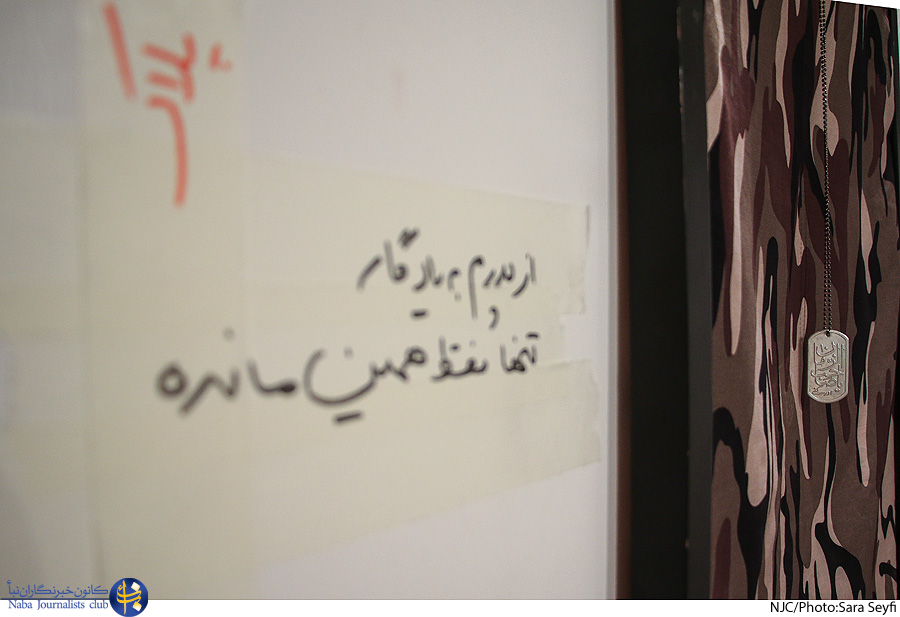 از پدرم به یادگار
و
تنها فقط همین مانده
کانون خبرنگاران نبأ
Naba Journalists club
NJC/Photo:Sara Seyfi